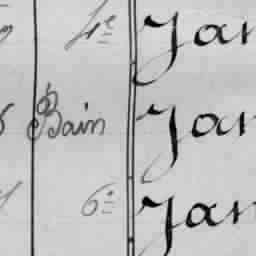 4e Jan
Bain Jan
6e Jan